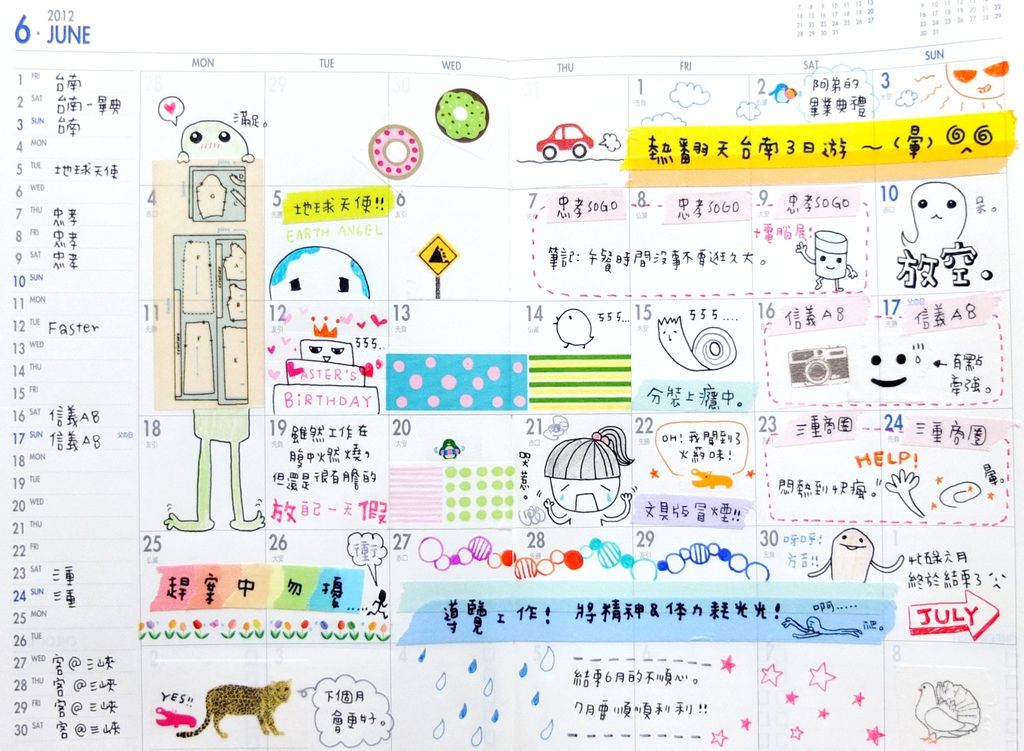 6・JUNE
2012
MON TUE WED THU FRI SAT SUN
1 FRI 台南
2 SAT 台南-畢典
3 SUN 台南
4 MON
5 TUE 地球天使
6 WED
7 THU 忠孝
8 FRI 忠孝
9 SAT 忠孝
10 SUN
11 MON
12 TUE Faster
13 WED
14 THU
15 FRI
16 SAT 信義A8
17 SUN 信義A8 父の日
18 MON
19 TUE
20 WED
21 THU
22 FRI
23 SAT 三重
24 SUN 三重
25 MON
26 TUE
27 WED 宮@三峽
28 THU 宮@三峽
29 FRI 宮@三峽
30 SAT 宮@三峽
28 29 30 31 1 2 3
滿足。
阿弟的
畢業典禮
熱翻天台南3日遊～(暈)
4 5 6 7 8 9 10
地球天使!!
EARTH ANGEL
忠孝SOGO
忠孝SOGO
忠孝SOGO
+電腦展!
筆記:午餐時間沒事不要逛久大。
呆。
放空。
11 12 13 14 15 16 17
555...
FASTER'S
BiRTHDAY
555...
555....
分裝上癮中。
信義A8
信義A8
←有點
牽強。
18 19 20 21 22 23 24
雖然工作在
腹中火燃燒,
但還是很有膽的
放自己一天假
OH!我聞到了
火藥味!
文具版冒煙!!
三重商圈
三重商圈
HELP!
悶熱到快瘋。
暈。
25 26 27 28 29 30 1
衝了
趕案中勿擾.....
導覽工作! 將精神&体力耗光光!
啊.....
呼呼!
方吉!!
忙碌六月
終於結束了
JULY
2 3 4 5 8
YES!!
下個月
會更好。
結束6月的不順心。
7月要順順利利!!